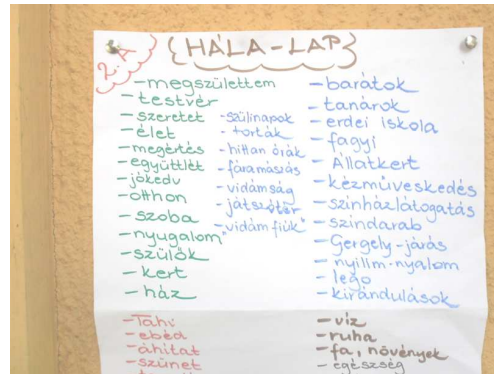 2.A
{HÁLA-LAP}
-megszülettem
-testvér
-szeretet
-élet
-megértés
-együttlét
-jókedv
-otthon
-szoba
-nyugalom
-szülők
-kert
-ház
-szülinapok
-torták
-hittan órák
-fáramászás
-vidámság
-játszótér
-"vidám fiúk"
-barátok
-tanárok
-erdei iskola
-fagyi
-Állatkert
-kézműveskedés
-színházlátogatás
-színdarab
-Gergely-járás
-nyilim-nyalom
-lego
-kirándulások
-Tahi
-ebéd
-áhitat
-szünet
-víz
-ruha
-fa, növények
-egészség